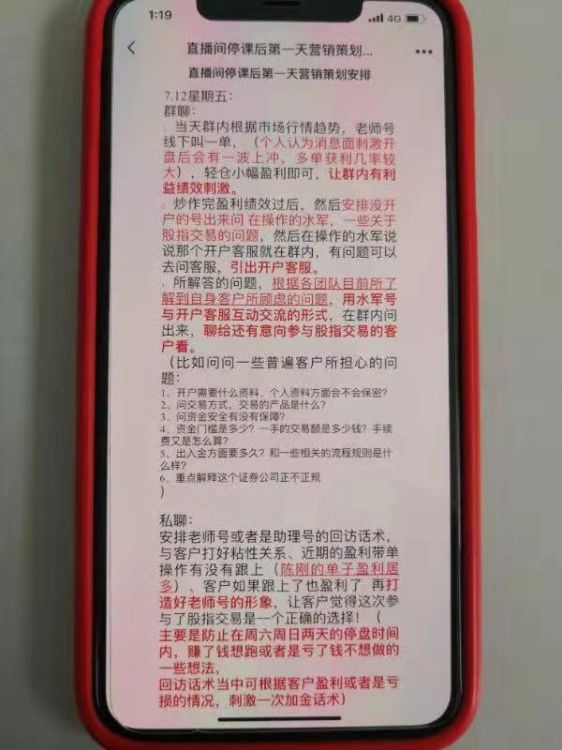 1:19
4G
直播间停课后第一天营销策划...
直播间停课后第一天营销策划安排
7.12星期五：
群聊：
当天群内根据市场行情趋势，老师号
线下叫一单，（个人认为消息面刺激开
盘后会有一波上冲，多单获利几率较
大），轻仓小幅盈利即可，让群内有利
益绩效刺激。
炒作完盈利绩效过后，然后安排没开
户的号出来问 在操作的水军，一些关于
股指交易的问题，然后在操作的水军说
说那个开户客服就在群内，有问题可以
去问客服，引出开户客服。
所解答的问题，根据各团队目前所了
解到自身客户所顾虑的问题，用水军号
与开户客服互动交流的形式，在群内问
出来，聊给还有意向参与股指交易的客
户看。
（比如问问一些普遍客户所担心的问
题：
1、开户需要什么资料、个人资料方面会不会保密？
2、问交易方式，交易的产品是什么？
3、问资金安全有没有保障？
4、资金门槛是多少？一手的交易额是多少钱？手续
费又是怎么算？
5、出入金方面要多久？和一些相关的流程规则是什
么样？
6、重点解释这个证券公司正不正规
）
私聊：
安排老师号或者是助理号的回访话术，
与客户打好粘性关系、近期的盈利带单
操作有没有跟上（陈刚的单子盈利居
多）、客户如果跟上了也盈利了 再打
造好老师号的形象，让客户觉得这次参
与了股指交易是一个正确的选择！（
主要是防止在周六周日两天的停盘时间
内，赚了钱想跑或者是亏了钱不想做的
一些想法，
回访话术当中可根据客户盈利或者是亏
损的情况，刺激一次加金话术）